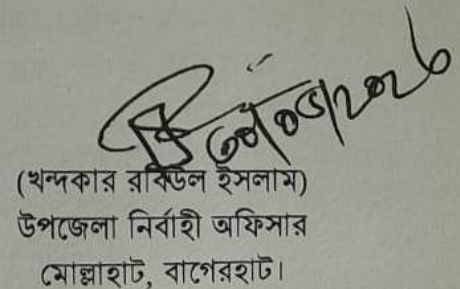 (খন্দকার রবিউল ইসলাম)
উপজেলা নির্বাহী অফিসার
মোল্লাহাট, বাগেরহাট।